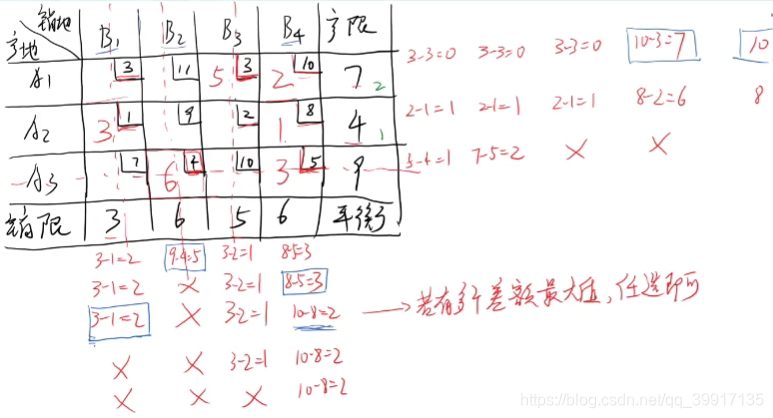 销地 B₁ B₂ B₃ B₄ 产限
产地
A1 3 11 5 3 2 10 7 2
A2 3 1 9 2 1 8 4 1
A3 7 6 4 10 3 5 9
销限 3 6 5 6 平衡
3-3=0 3-3=0 3-3=0 10-3=7 10
2-1=1 2-1=1 2-1=1 8-2=6 8
5-4=1 7-5=2 × ×
3-1=2 9-4=5 3-2=1 8-5=3
3-1=2 × 3-2=1 8-5=3
3-1=2 × 3-2=1 10-8=2 → 若有多个差额最大值,任选即可
× × 3-2=1 10-8=2
× × × 10-8=2
https://blog.csdn.net/qq_39917135